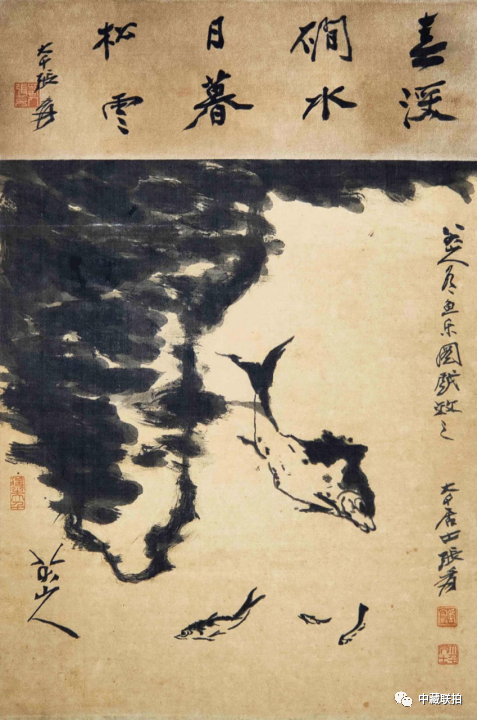 春溪
磵水
日暮
松雲
大千張爰
八大山人有魚樂圖戲效之
大千居士張爰
八大山人
中藏联拍